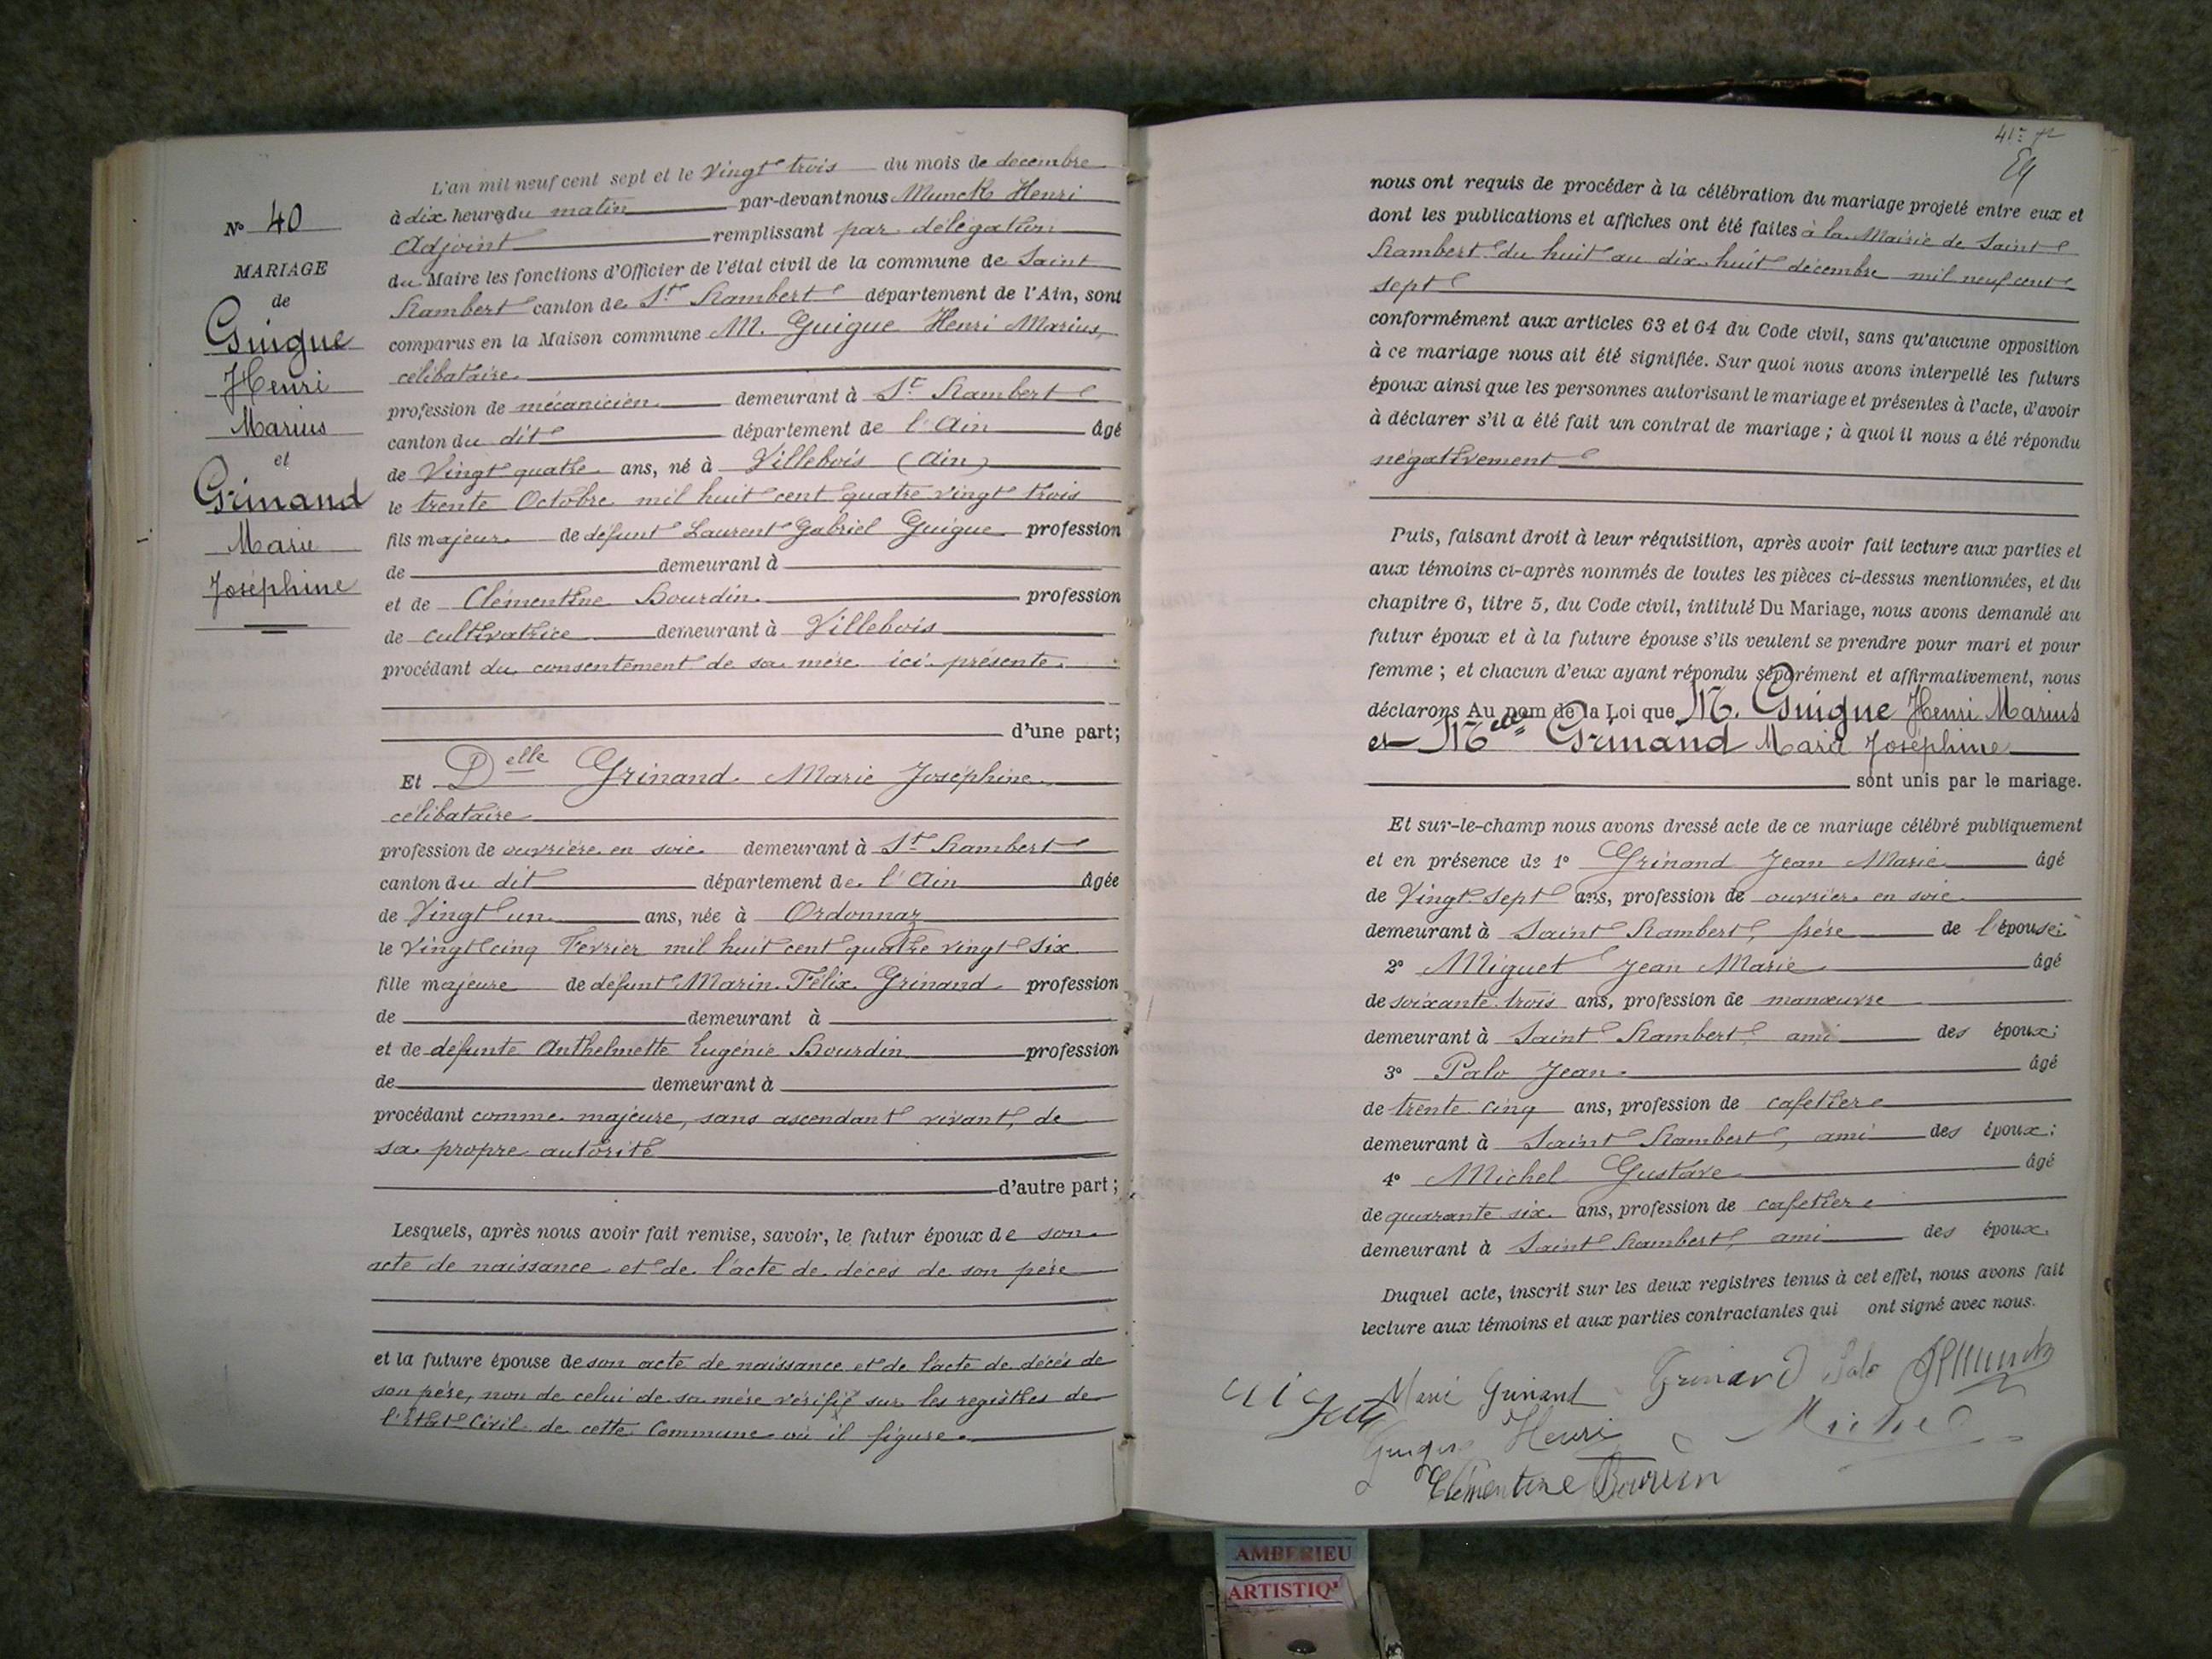 N° 40
MARIAGE
de
Guigue
Henri
Marius
et
Grinand
Marie
Joséphine
L'an mil neuf cent sept et le Vingt trois du mois de decembre
à dix heures du matin par-devant nous Munck Henri
Adjoint remplissant par délégation
du Maire les fonctions d'Officier de l'état civil de la commune de Saint
Rambert canton de St Rambert département de l'Ain, sont
comparus en la Maison commune M. Guigue Henri Marius,
célibataire
profession de mécanicien demeurant à St Rambert
canton du dit département de l'Ain âgé
de Vingt quatre ans, né à Villebois (Ain)
le trente Octobre mil huit cent quatre vingt trois
fils majeur de défunt Laurent Gabriel Guigue profession
de demeurant à
et de Clémentine Bourdin profession
de cultivatrice demeurant à Villebois
procédant du consentement de sa mère ici présente.
d'une part;
Et Delle Grinand Marie Joséphine
célibataire
profession de ouvrière en soie demeurant à St Rambert
canton du dit département de l'Ain âgée
de Vingt un ans, née à Ordonnaz
le Vingt cinq Fevrier mil huit cent quatre vingt six
fille majeure de défunt Marin Félix Grinand profession
de demeurant à
et de défunte Anthelmette Eugénie Bourdin profession
de demeurant à
procédant comme majeure, sans ascendant vivant, de
sa propre autorité
d'autre part;
Lesquels, après nous avoir fait remise, savoir, le futur époux de son
acte de naissance et de l'acte de décès de son père
et la future épouse de son acte de naissance et de l'acte de décès de
son père, non de celui de sa mère vérifié sur les registres de
l'Etat Civil de cette Commune où il figure.
nous ont requis de procéder à la célébration du mariage projeté entre eux et
dont les publications et affiches ont été faites à la Mairie de Saint
Rambert du huit au dix huit décembre mil neuf cent
sept
conformément aux articles 63 et 64 du Code civil, sans qu'aucune opposition
à ce mariage nous ait été signifiée. Sur quoi nous avons interpellé les futurs
époux ainsi que les personnes autorisant le mariage et présentes à l'acte, d'avoir
à déclarer s'il a été fait un contrat de mariage; à quoi il nous a été répondu
négativement
Puis, faisant droit à leur réquisition, après avoir fait lecture aux parties et
aux témoins ci-après nommés de toutes les pièces ci-dessus mentionnées, et du
chapitre 6, titre 5, du Code civil, intitulé Du Mariage, nous avons demandé au
futur époux et à la future épouse s'ils veulent se prendre pour mari et pour
femme; et chacun d'eux ayant répondu séparément et affirmativement, nous
déclarons Au nom de la Loi que M. Guigue Henri Marius
et Melle Grinand Marie Joséphine
sont unis par le mariage.
Et sur-le-champ nous avons dressé acte de ce mariage célébré publiquement
et en présence de 1° Grinand Jean Marie âgé
de Vingt sept ans, profession de ouvrier en soie
demeurant à Saint Rambert, frère de l'épouse;
2° Miguet Jean Marie âgé
de soixante trois ans, profession de manœuvre
demeurant à Saint Rambert, ami des époux;
3° Palo Jean âgé
de trente cinq ans, profession de cafetier
demeurant à Saint Rambert, ami des époux;
4° Michel Gustave âgé
de quarante six ans, profession de cafetier
demeurant à Saint Rambert, ami des époux.
Duquel acte, inscrit sur les deux registres tenus à cet effet, nous avons fait
lecture aux témoins et aux parties contractantes qui ont signé avec nous.
Marie Grinand Grinand Palo HMunck
Guigue Henri Michel
Clémentine
AMBERIEU
ARTISTIQ